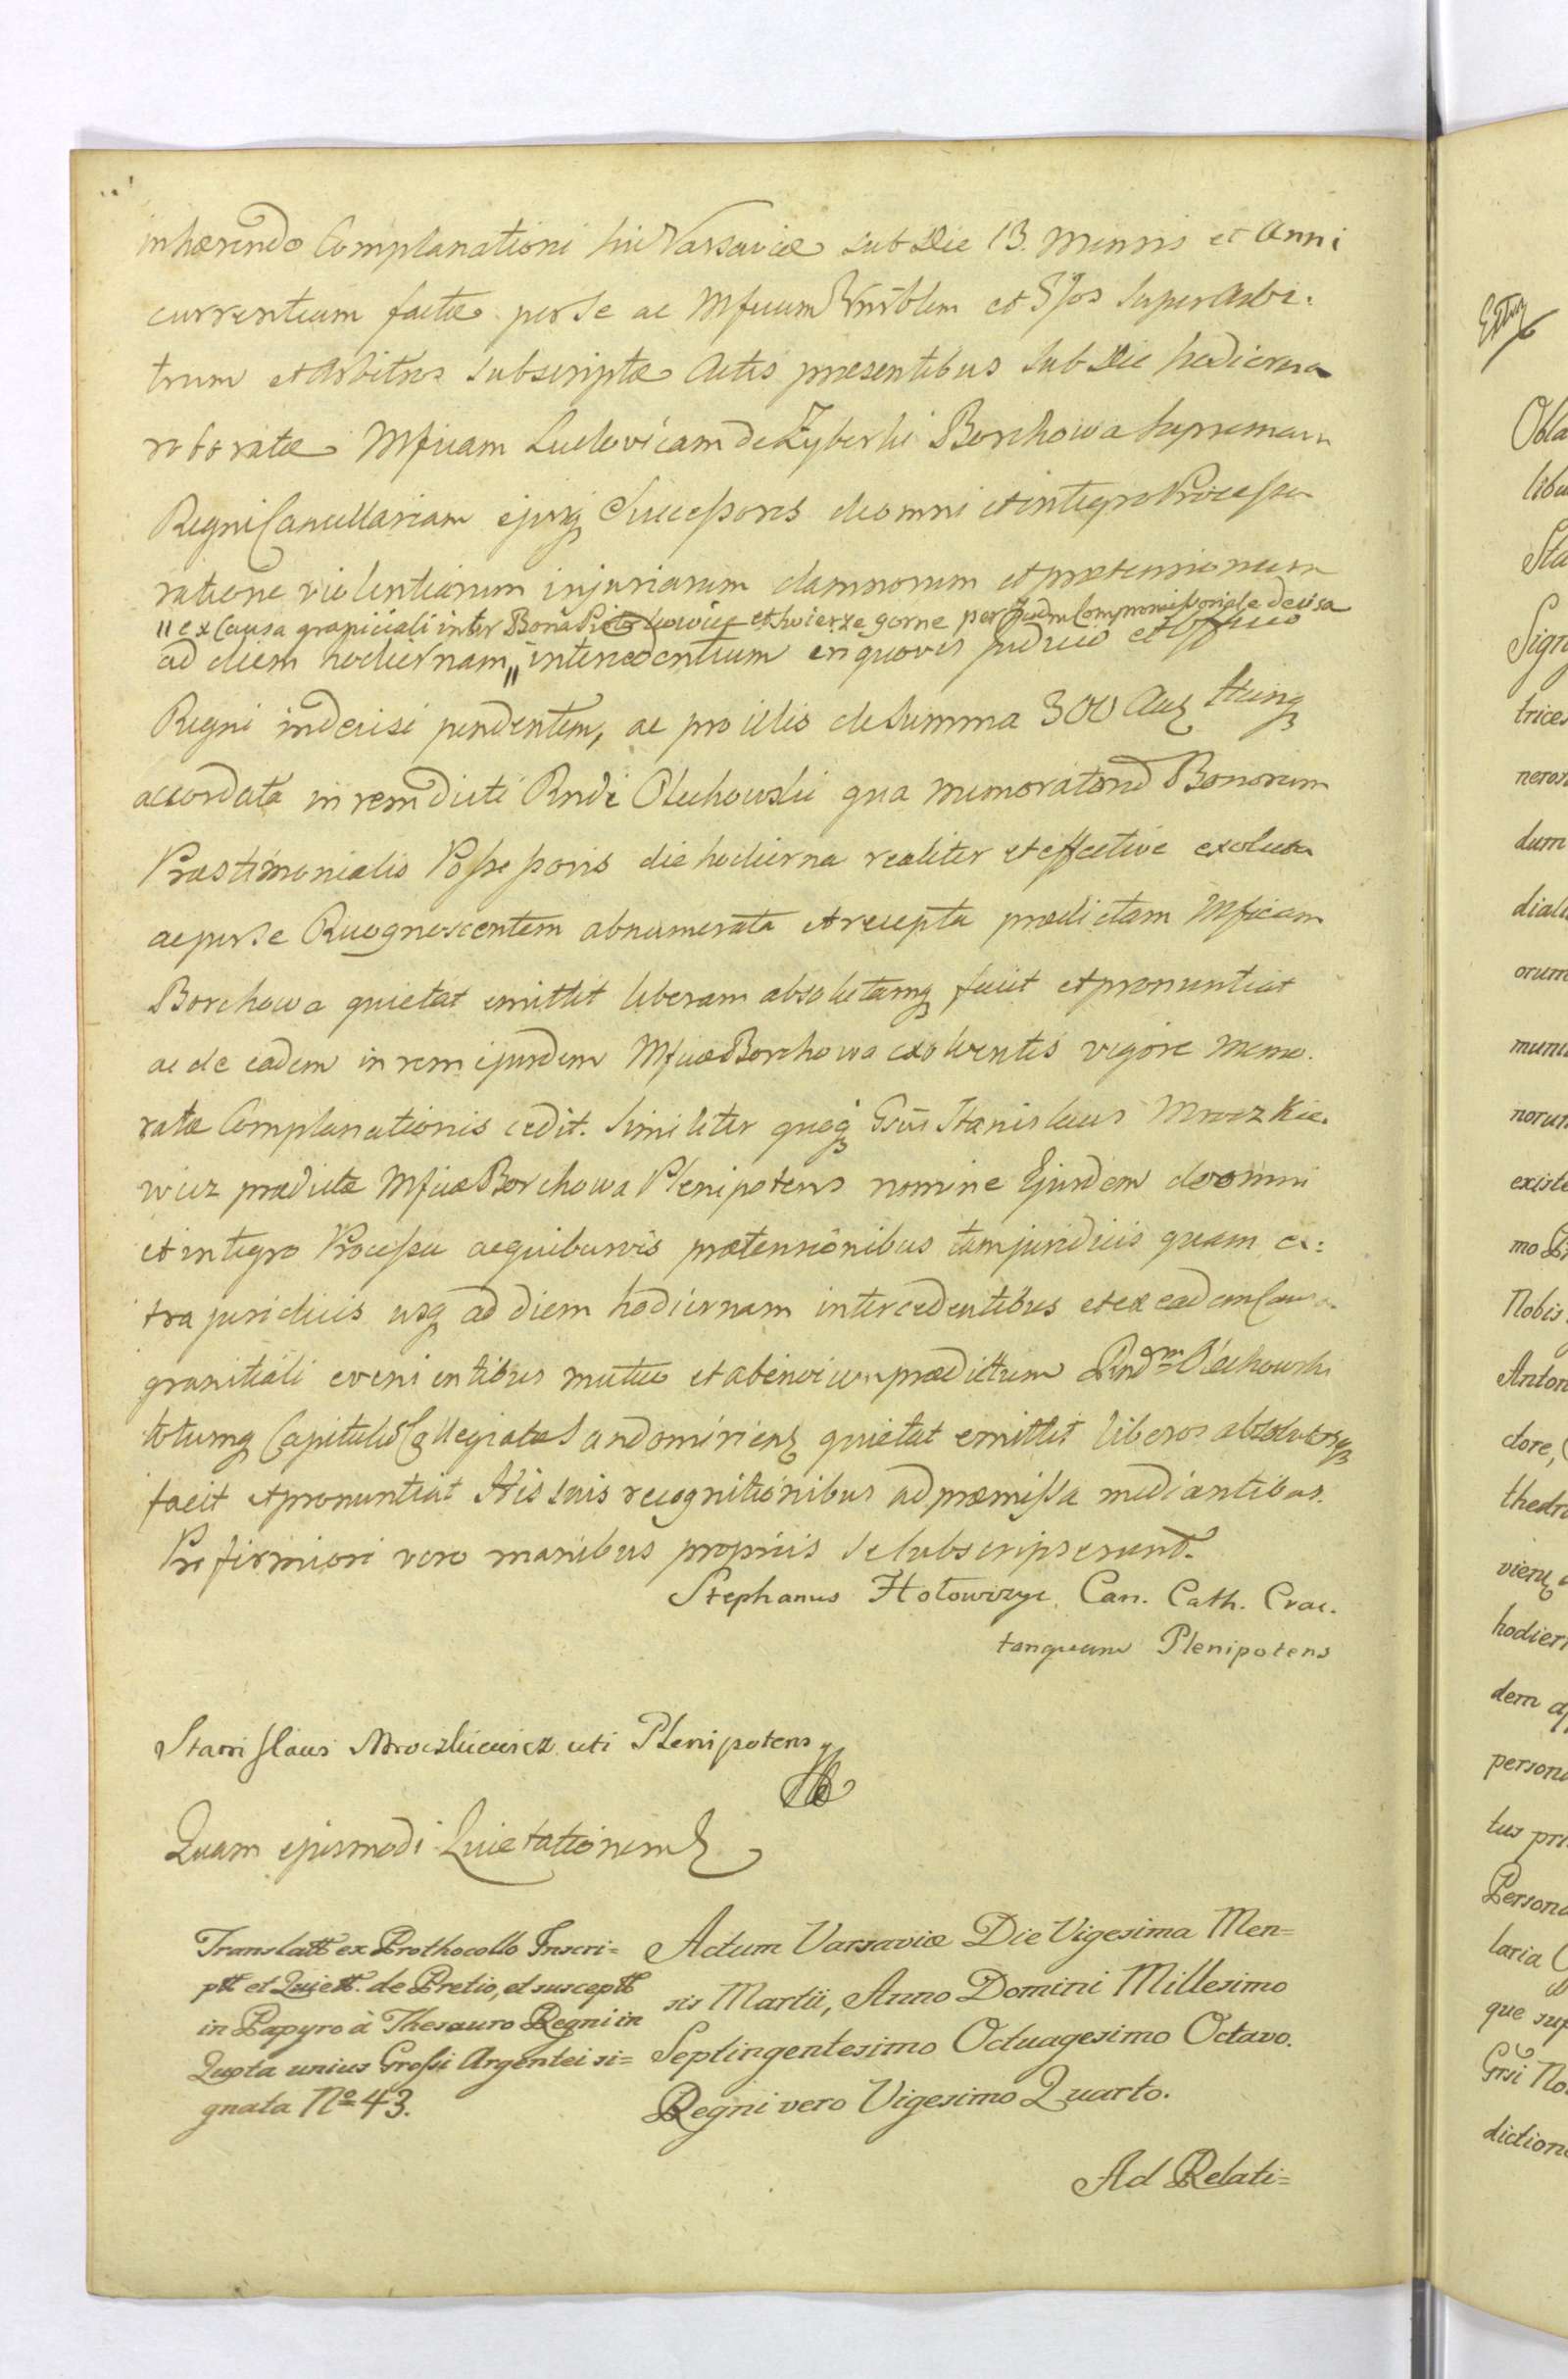 inhærendo Complanationi hic Varsaviæ sub Die 13. Mensis et Anni
currentium factæ per se ac Mficum Vnrblem et Sptos Super Arbi-
trum et Arbitros subscriptæ Actis præsentibus sub Die hodierna
roboratæ Mficam Ludovicam de Zyberki Borchowa Supremam
Regni Cancellariam ejusq Successores de omni et integro Processu
ratione violentiarum injuriarum damnorum et prætensionum
"ex Causa graniciali inter Bona et Swierze gorne per Judm Compromissoriale decisa
ad diem hodiernam " intercedentium in quovis Judicio et Officio
Regni indecisi pendentem, ac pro illis de Summa 300 Aur Hung
accordata in rem dicti Rndi Olechowski qua memoratorum Bonorum
Præstimonialis Possessoris die hodierna realiter et effective exoluta
ac per se Recognoscentem abnumerata et recepta prædictam Mficam
Borchowa quietat emittit liberam absolutamq facit et pronuntiat
ac de eadem in rem ejusdem Mficæ Borchowa exolventis vigore memo-
ratæ Complanationis cedit. Similiter quoq Gsus Stanislaus Mroczkie-
wicz prædictæ Mficæ Borchowa Plenipotens nomine Ejusdem de omni
et integro Processu ac quibusvis prætensionibus tam juridicis quam ex:
tra juridicis usq ad diem hodiernam intercedentibus et ex eadem Causa
granitiali evenientibus mutuo et ab invicem prædictum Rndm Olechowski
totumq Capitulum Collegiatæ Sandomiriens quietat emittit liberos absolutosq
facit et pronuntiat His suis recognitionibus ad præmissa mediantibus.
Pro firmiori vero manibus propriis se subscripserunt.
Stephanus Hołowczyc Can. Cath. Crac.
tanquam Plenipotens
Stanislaus Mroczkiewicz uti Plenipotens
Quam ejusmodi Quietationem
Translatt ex Prothocollo Inscri=
ptt et Quiett. de Pretio, et susceptt
in Papyro à Thesauro Regni in
Quota unius Grossi Argentei si=
gnata No 43.
Actum Varsaviæ Die Vigesima Men=
sis Martii, Anno Domini Millesimo
Septingentesimo Octuagesimo Octavo.
Regni vero Vigesimo Quarto.
Ad Relati=